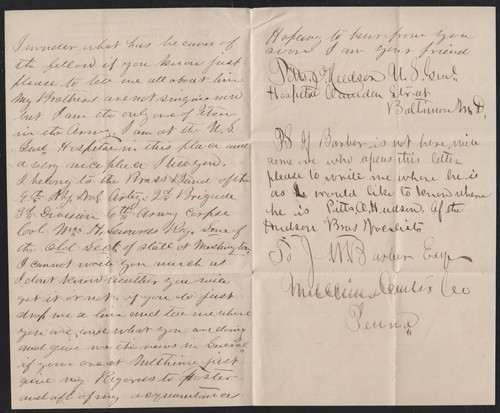 I wonder what has became of
the fellow if you know just
please to tell me all about him
my Brothers are not singing now
but I am the only one of them
in the Army. I am at the U.S.
Genl Hospital in this place and
a very nice place I tell you.
I belong to the Brass Band of the
6th Artly 2d Brigade
3d Division 6th Army Corps
Col Wm H. Seward Esq. Son of
the Old Sect of State at Washington
I cannot write you much as
I dont know weather you will
get it or not. if you do just
drop me a line and tell me where
you are, and what you are doing
and give me the news in General
if your are at just
give my Regards to Foster
and all of my acquaintances
Hopeing to hear from you
soon I am your friend
Pitts A Hudson U.S. Genl
Hospital Camden Street
Baltimore M.D.
PS If Barber is not here, will
some one who opens this letter
please to write me where he is
as I would like to know where
he is Pitts A. Hudson. Of the
Hudson Bros Vocalists
To J. W. Barber Esq
Center Co
Penna